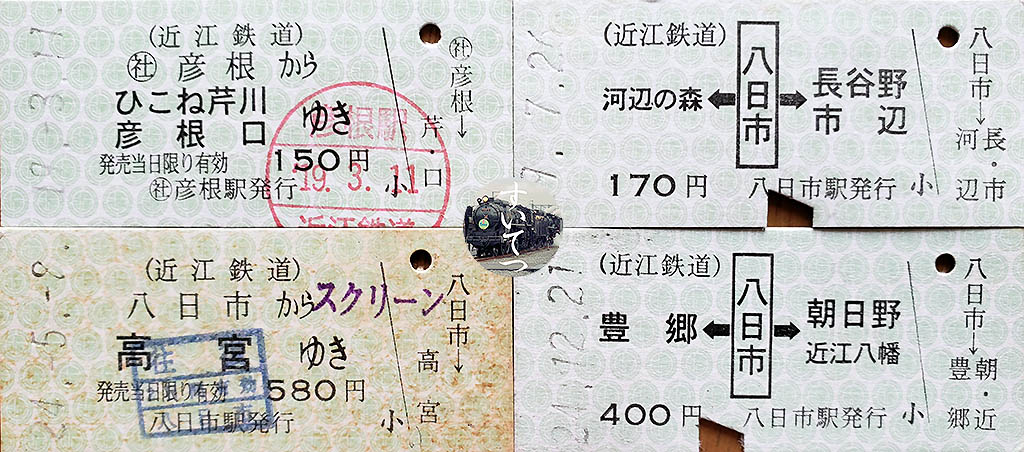 (近江鉄道)
社 彦根から
ひこね芹川
彦根口 ゆき
発売当日限り有効 150円
社彦根駅発行 小
社彦根→
芹・口
彦根駅
'19.3.11
近江鉄道
(近江鉄道)
河辺の森←八日市→長谷野
市辺
170円 八日市駅発行 小
八日市→
長・市
河辺
(近江鉄道)
八日市から スクリーン
高宮 ゆき
発売当日限り有効 580円
八日市駅発行 小
八日市→
高宮
往
(近江鉄道)
豊郷←八日市→朝日野
近江八幡
400円 八日市駅発行 小
八日市→
朝・近
豊郷
すいてつ